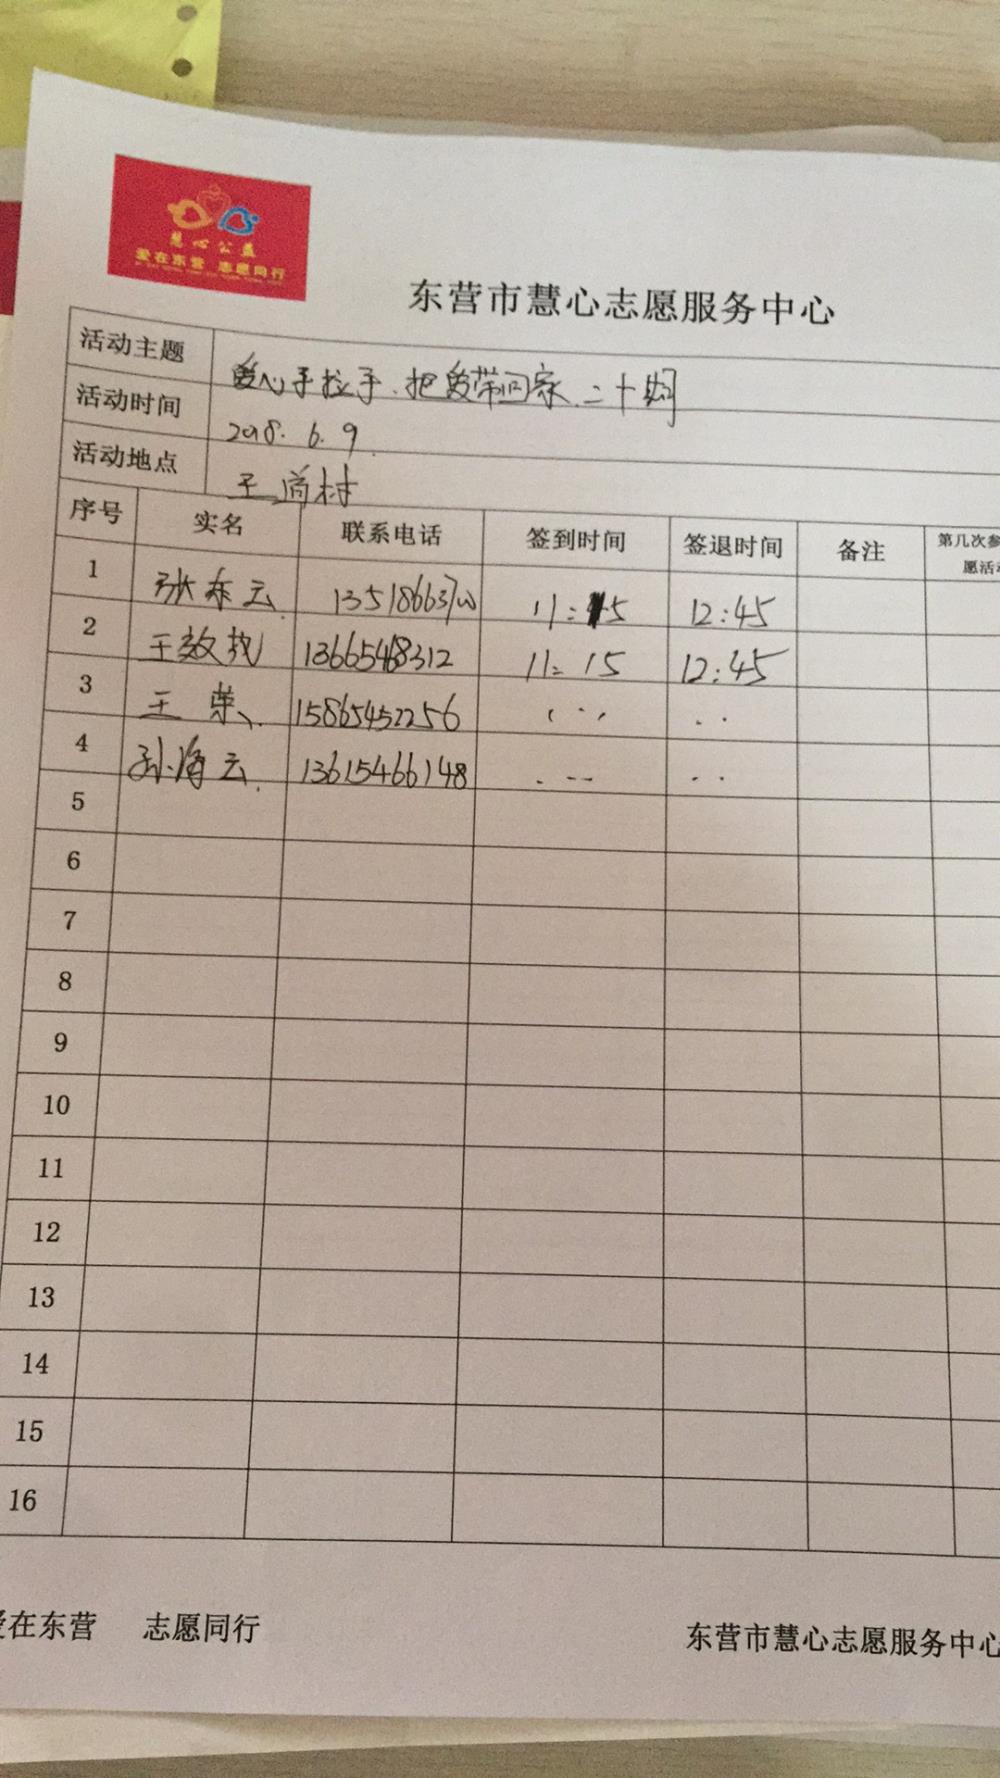 慧心公益
爱在东营 志愿同行
东营市慧心志愿服务中心
活动主题 爱心手拉手.把爱带回家.二十期
活动时间 2018.6.9.
活动地点 王道村
序号 实名 联系电话 签到时间 签退时间 备注 第几次参
愿活
1 张东云. 12:45
2 王效 13665468312 11:15 12:45
3 王荣 15865452256
4 孙海云. 13615466148
5
6
7
8
9
10
11
12
13
14
15
16
爱在东营 志愿同行 东营市慧心志愿服务中心